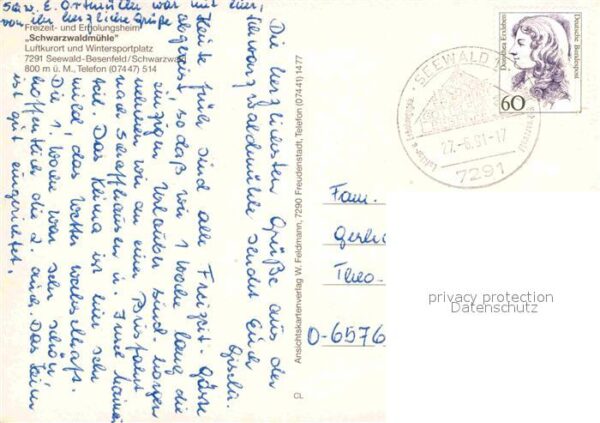 Freizeit- und Erholungsheim
„Schwarzwaldmühle"
Luftkurort und Wintersportplatz
7291 Seewald-Besenfeld/Schwarzwald
800 m ü. M., Telefon (07447) 514
Die herzlichsten Grüße aus der
Schwarzwaldmühle sendet Euch
Gisela.
Heute früh sind alle Freizeit-Gäste
abgereist, so daß wir 1 Woche lang die
einzigen Urlauber sind. Morgen
nehmen wir an einer Busfahrt
nach Schaffhausen u. Insel Mainau
teil. Das Klima ist hier sehr
mild, das Wetter wechselhaft.
Die 1. Woche war sehr schön,
hoffentlich die 2. auch. Das Heim
ist gut eingerichtet.
E. Ortmüller war mit hier,
von ihr herzliche Grüße
Ansichtskartenverlag W. Feldmann, 7290 Freudenstadt, Telefon (07441) 1477
Dorothea Erxleben
Deutsche Bundespost
60
SEEWALD
27.-6.91-17
7291
Fam.
Theo-
O-6576
privacy protection
Datenschutz